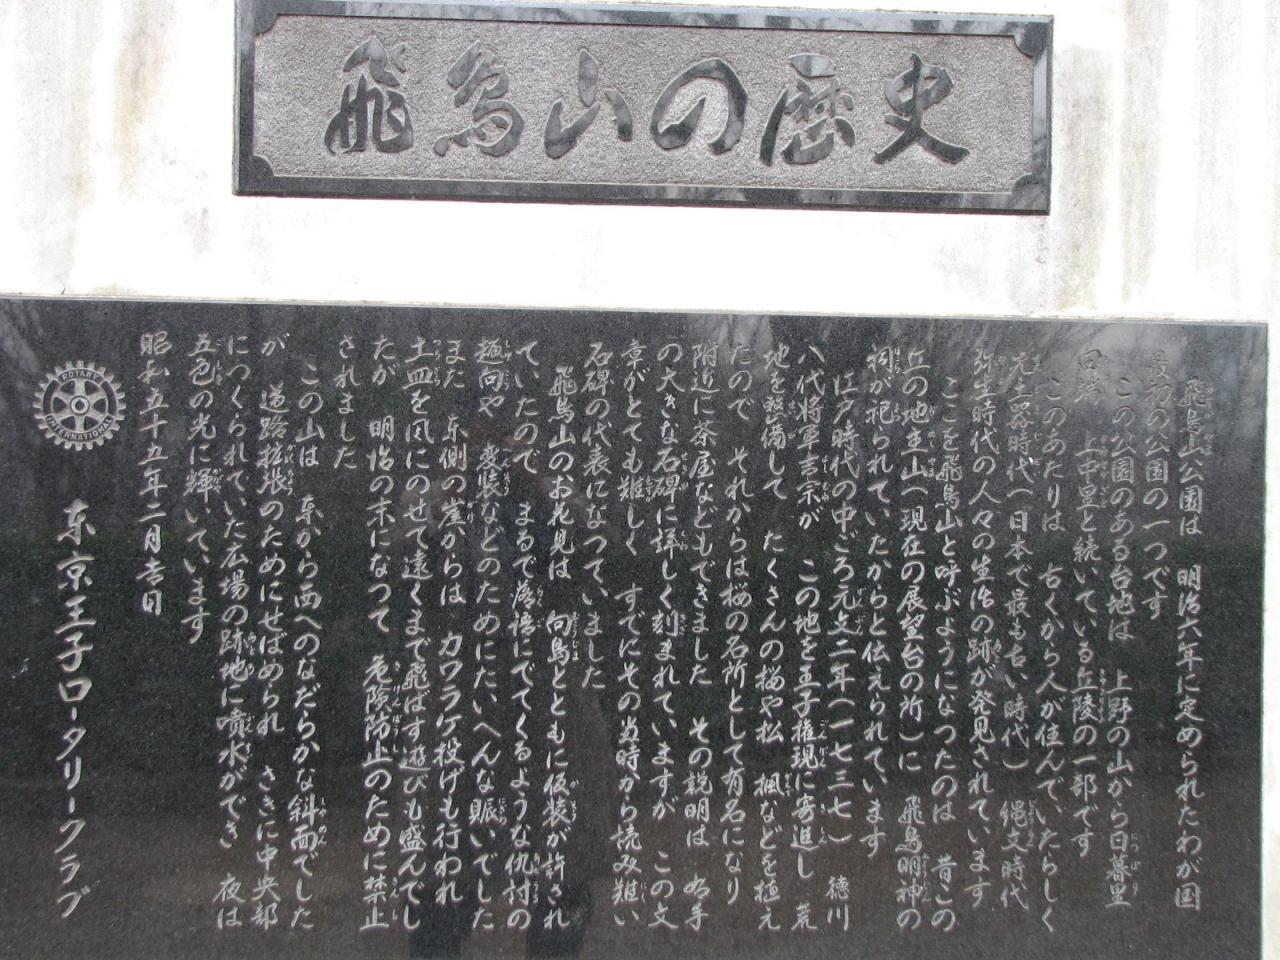 飛鳥山の歴史
飛鳥山公園は 明治六年に定められたわが国
最初の公園の一つです
この公園のある台地は 上野の山から日暮里
田端 上中里と続いている丘陵の一部です
このあたりは 古くから人が住んでいたらしく
先土器時代(日本で最も古い時代) 縄文時代
弥生時代の人々の生活の跡が発見されています
ここを飛鳥山と呼ぶようになったのは 昔この
丘の地主山(現在の展望台の所)に 飛鳥明神の
祠が祀られていたからと伝えられています
江戸時代の中ごろ元文二年(一七三七) 徳川
八代将軍吉宗が この地を王子権現に寄進し 荒
地を整備して たくさんの桜や松 楓などを植え
たので それからは桜の名所として有名になり
附近に茶屋などもできました その説明は 右手
の大きな石碑に詳しく刻まれていますが この文
章がとても難しく すでにその当時から読み難い
石碑の代表になっていました
飛鳥山のお花見は 向島とともに仮装が許され
ていたので まるで落語にでてくるような仇討の
趣向や 変装などのためにたいへんな賑いでした
また 東側の崖からは カワラケ投げも行われ
土皿を風にのせて遠くまで飛ばす遊びも盛んでし
たが 明治の末になって 危険防止のために禁止
されました
この山は 東から西へのなだらかな斜面でした
が 道路拡張のためにせばめられ さきに中央部
につくられていた広場の跡地に噴水ができ 夜は
五色の光に輝いています
昭和五十五年二月吉日
ROTARY INTERNATIONAL
東京王子ロータリークラブ